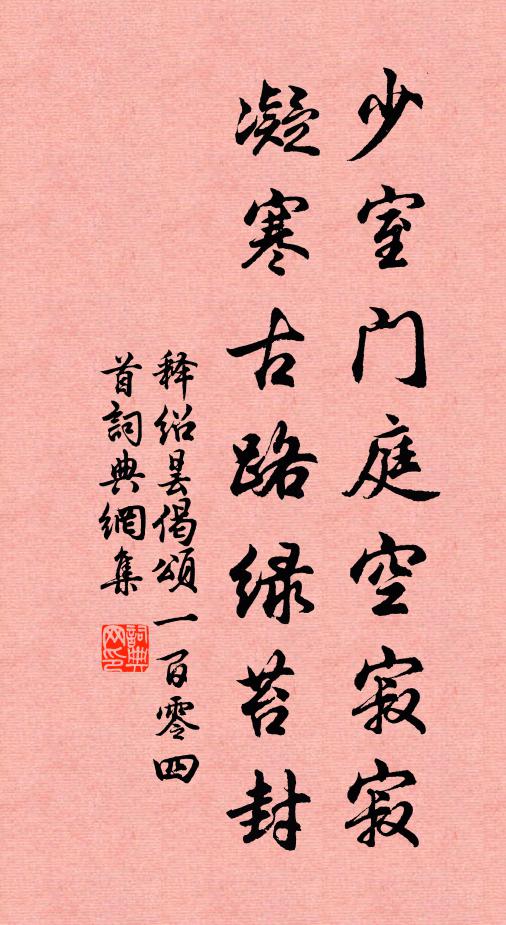 少室门庭空寂寂
凝寒古路绿苔封
释绍昙偈颂一百零四
首词典网集
词典网印